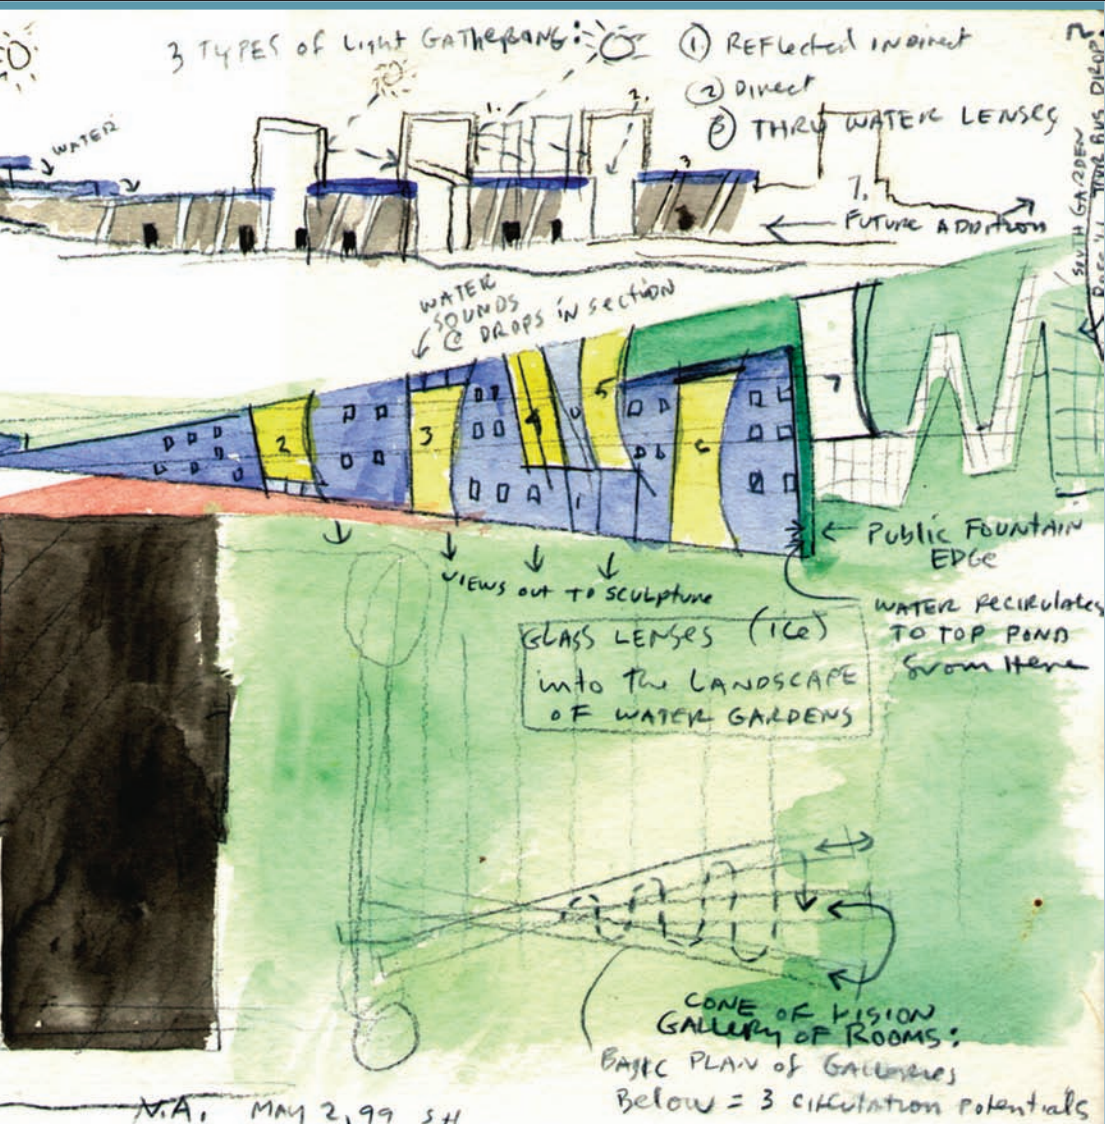 3 TYPES of Light GATHERING:
① REFlected INDirect
② Direct
③ THRU WATER LENSES
WATER
1.
2.
3
7.
FUTURE ADDITION
SOUTH GARDEN
BUS DROP
WATER
SOUNDS
@ DROPS in section
2
3
4
5
6
7
Public FOUNTAIN
EDGe
VIEWS out TO SCULPTURE
WATER RECIRCULATES
TO TOP POND
from Here
GLASS LENSES (ice)
into The LANDSCAPE
OF WATER GARDENS
CONE OF VISION
GALLERY OF ROOMS:
BASIC PLAN of GALLERIES
Below = 3 circulation potentials
N.A. MAY 2, 99 SH